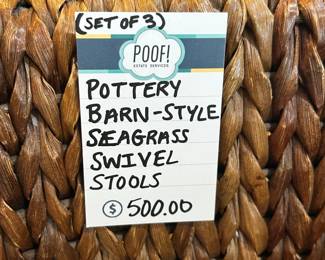 (SET OF 3)
POOF!
ESTATE SERVICES
POTTERY
BARN-STYLE
SEAGRASS
SWIVEL
STOOLS
$ 500.00